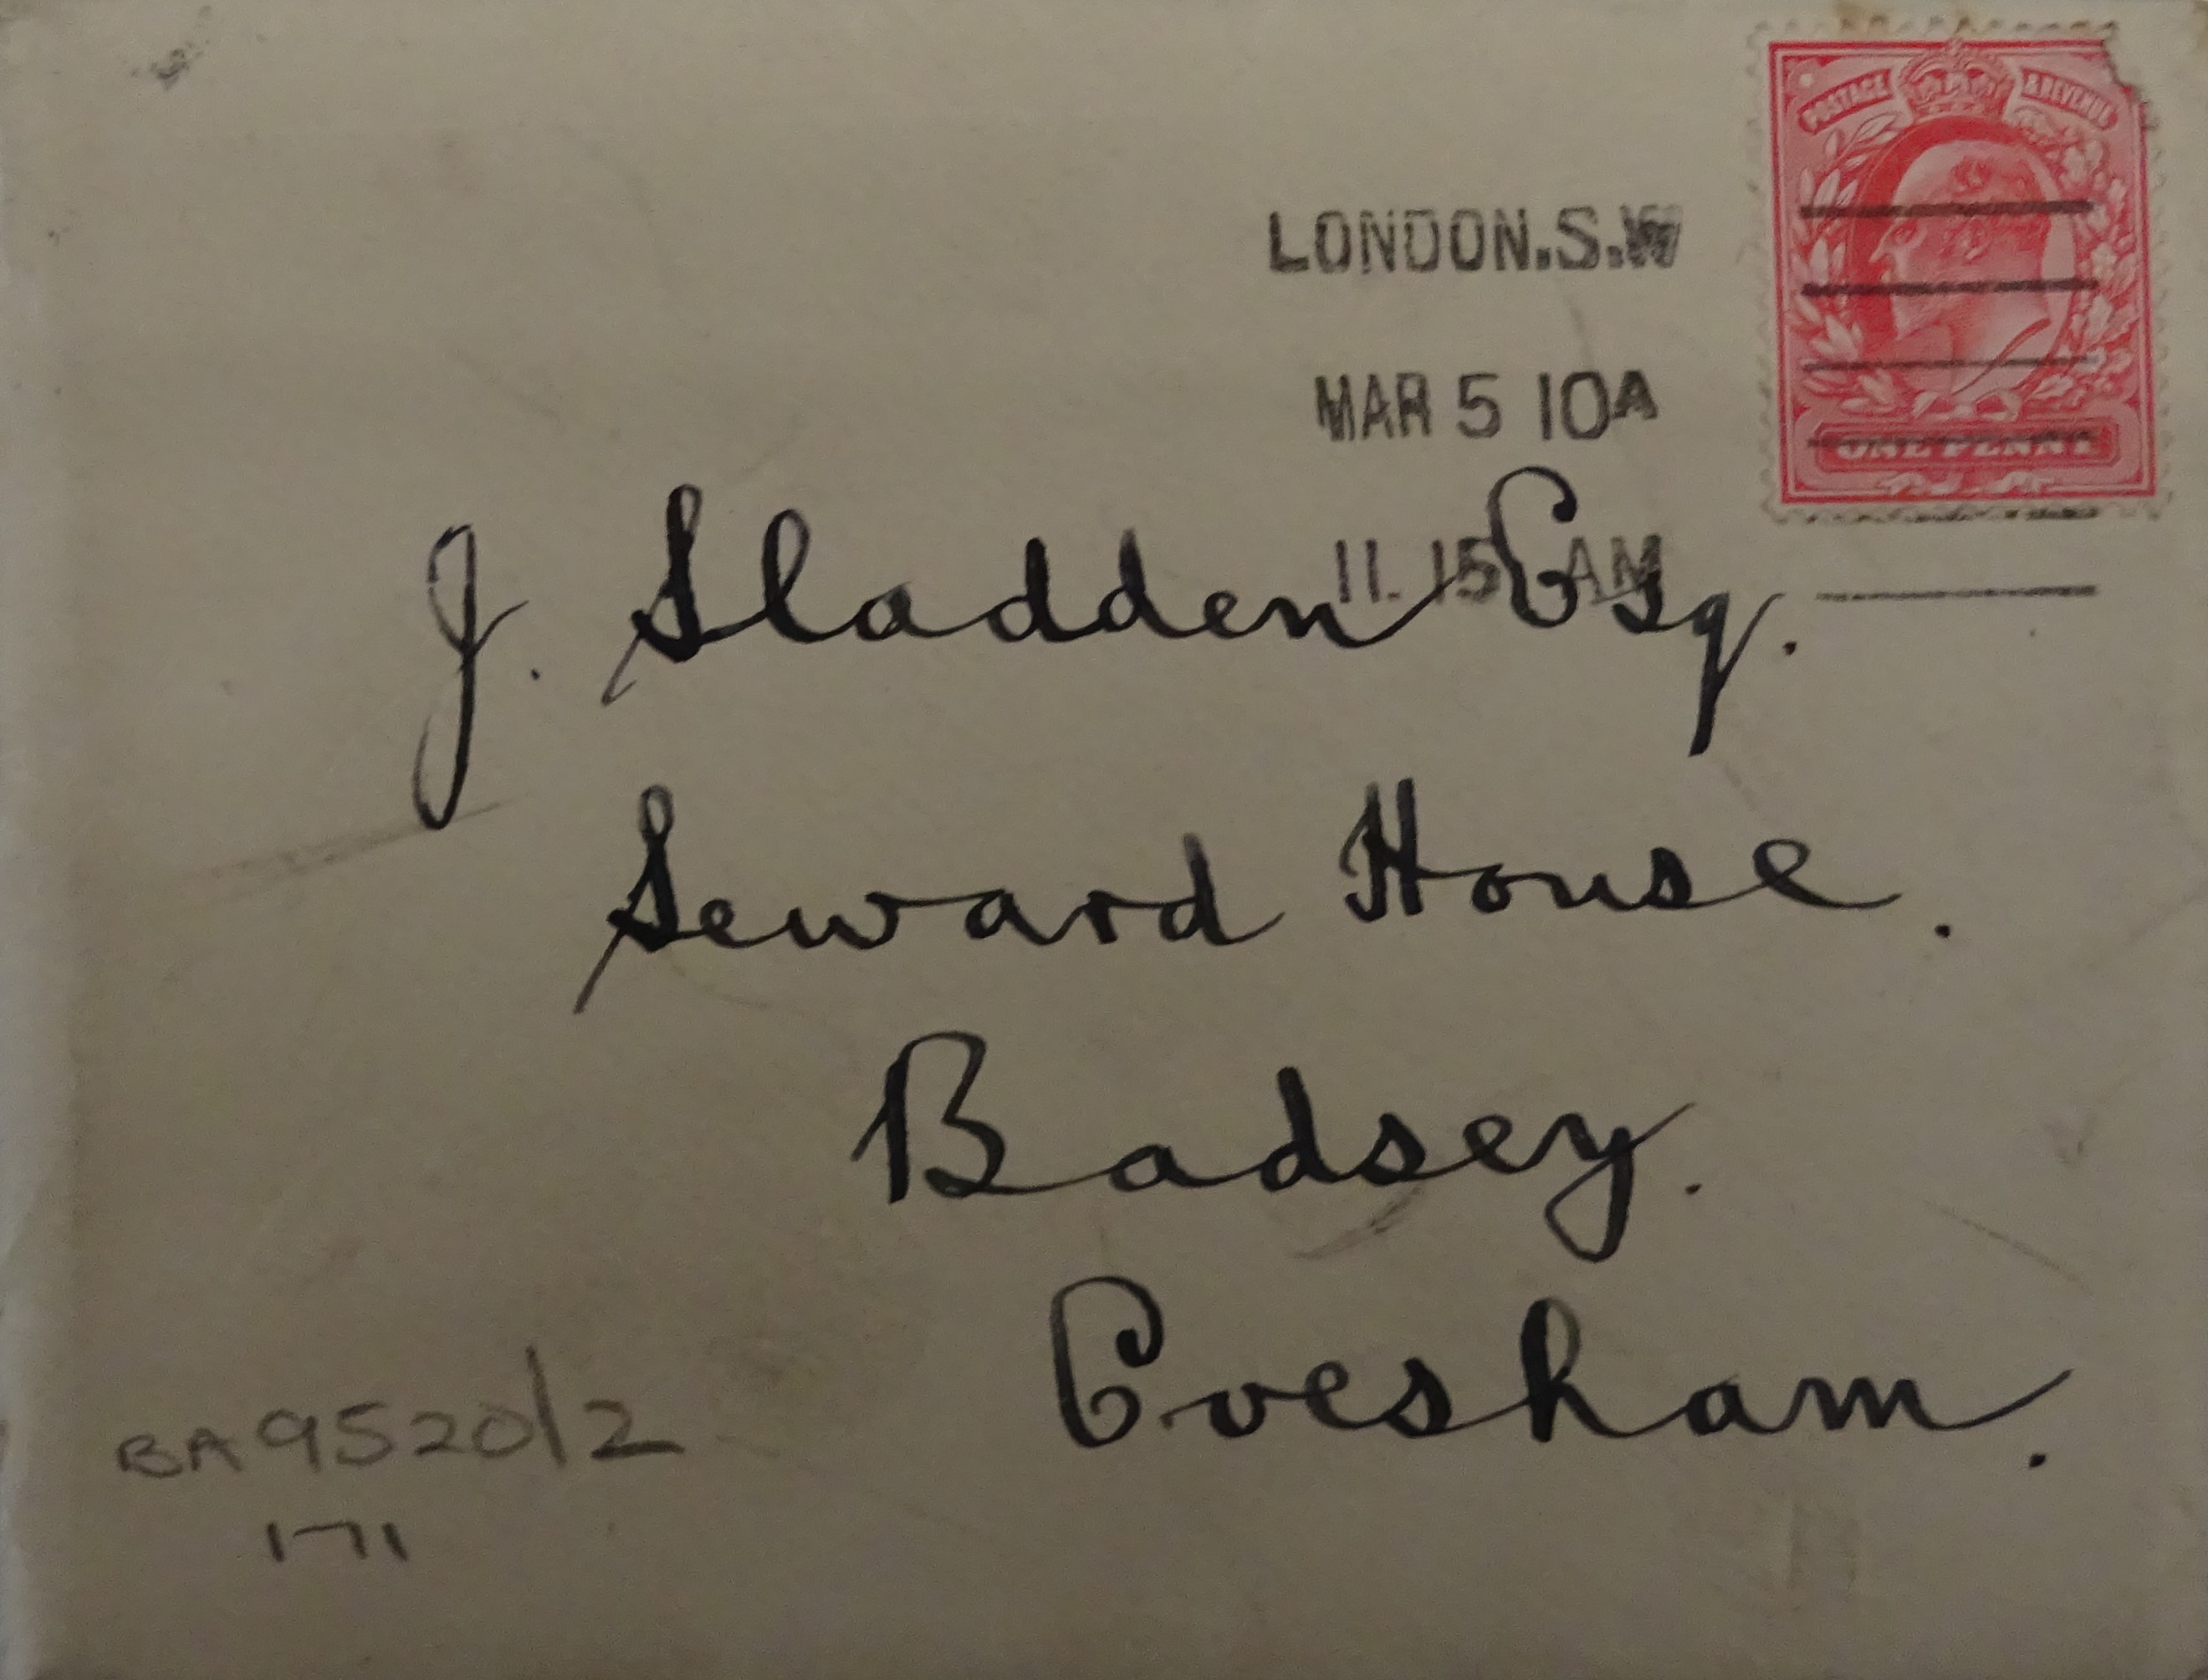 POSTAGE & REVENUE
ONE PENNY
LONDON.S.W
MAR 5 10A
11.15 AM
J. Sladden Esq.
Seward House.
Badsey.
Evesham.
BA 9520/2
171